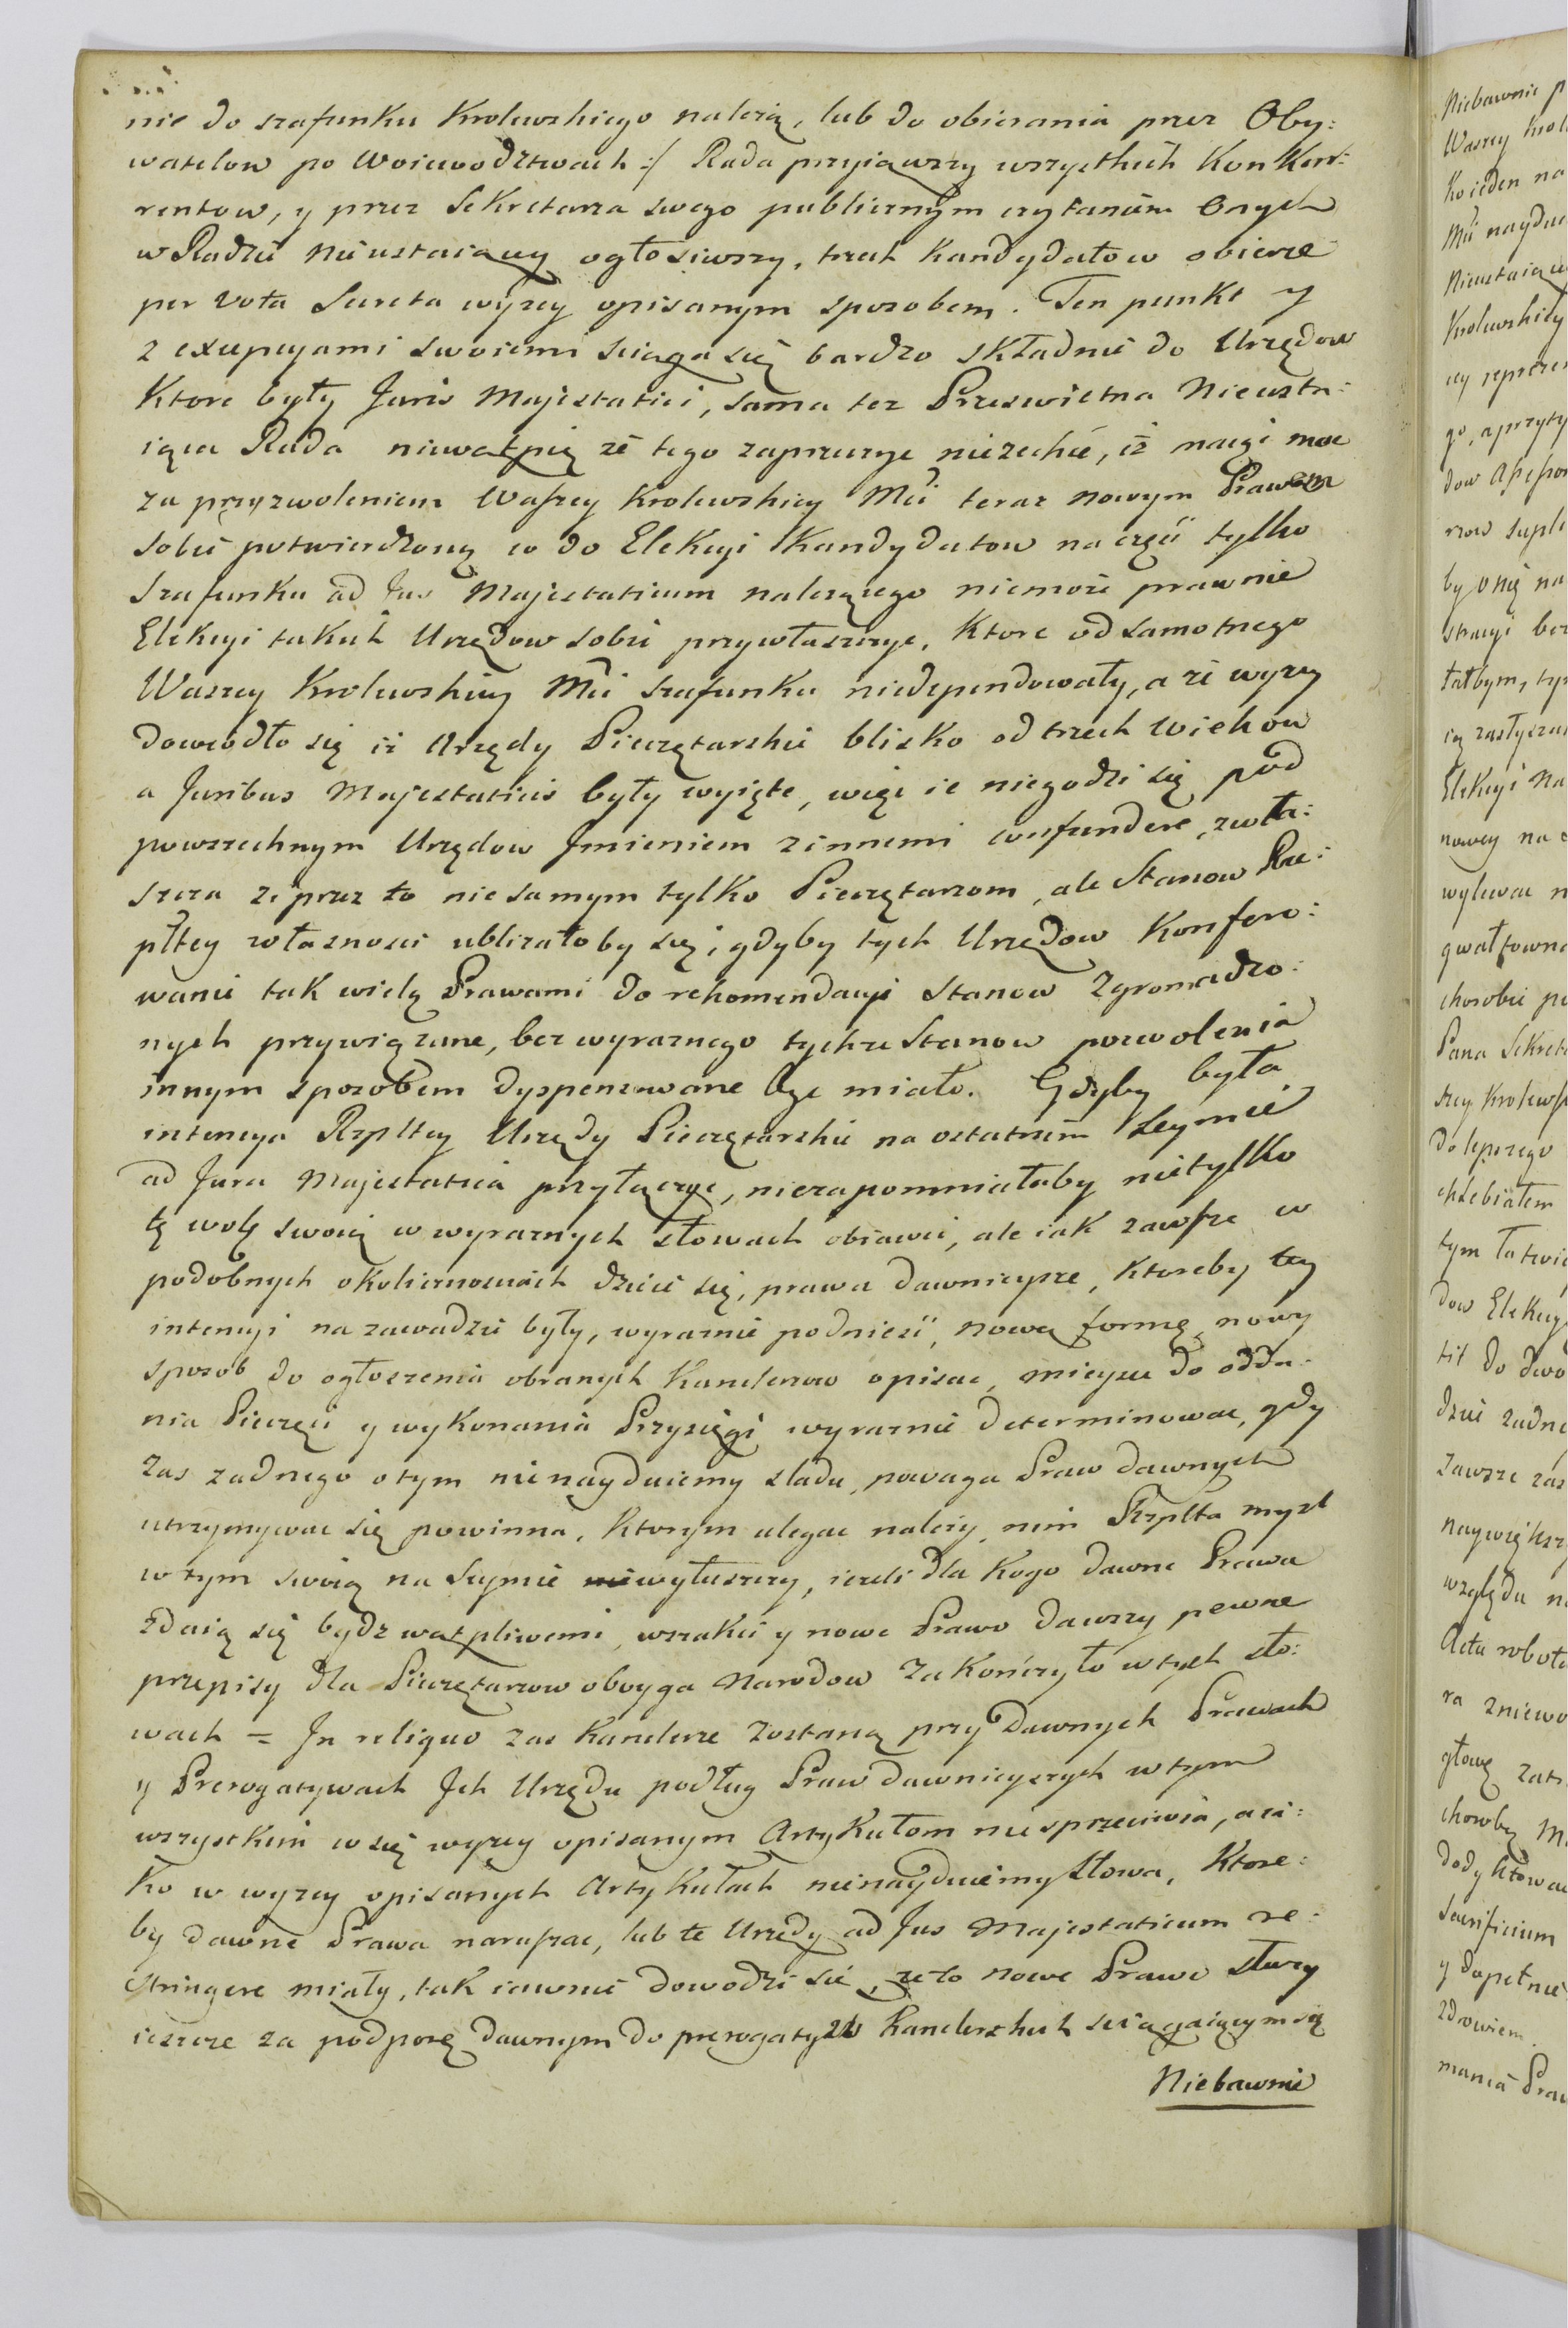 nie do szafunku Krolewskiego naležą, lub do obierania przez Oby:
watelow po Woiewodztwach :/ Rada przyiąwszy wszystkich Konkur:
rentow, y przez Sekretarza swego publicznym czytaniem Onych
w Radzie nieustaiący ogłosiwszy, trzech Kandydatow obierze
per Vota Secreta wyżey opisanym sposobem. Ten punkt y
z excepcyami swoiemi sciąga się bardzo składnie do Urzędow
Ktore były Juris Majestatici, sama tez Prześwietna Nieusta:
iąca Rada niewątpię że tego zaprzeczyc niezechće, iż maiąc moc
za przyzwoleniem Waszey Krolewskiey Mci teraz nowym Prawem
sobie potwierdzoną co do Elekcyi Kandydatow na częśi tylko
Szafunku ad Jus Majestaticum należącego niemoże prawnie
Elekcyi takich Urzędow sobie przywłaszczyc, Ktore od samotnego
Waszey Krolewskiey Mci szafunku niedependowały, a że wyzey
dowiodło się iż Urzędy Pieczętarskie blisko od trzech Wiekow
a Juribus Majestaticis były wyięte, więc ie niegodzi się pod
powszechnym Urzędow Jmieniem z innemi confundere, zwła:
szcza że przez to nie samym tylko Pieczętarzom, ale Stanow Rze:
pltey własnosci ubliżało by się, gdyby tych Urzędow Konfero:
wanie tak wielą Prawami do rekomendacyi Stanow Zgromadzo:
nych przywiązane, bez wyraznego tychze Stanow pozwolenia
innym sposobem dyspensowane byc miało. Gdyby była
intencya Rzpltey Urzędy Pieczętarskie na ostatnim Seymie
ad Jura Majestatica przyłączyc, niezapomniałaby nietylko
tę wolę swoią w wyraznych słowach obiawić, ale iak zawsze w
podobnych okolicznosciach dzieie się, prawa dawnieysze, ktoreby tey
intencyi na zawadzie były, wyraznie podnieśi, nową formę, nowy
sposob do ogłoszenia obranych Kanclerzow opisac, mieysce do odda:
nia Pieczęci y wykonania Przysięgi wyraznie determinowac, gdy
zas zadnego o tym nie nayduiemy sladu, powaga Praw dawnych
utrzymywac się powinna, ktorym ulegac nalezy, nim Rzplta mysl
w tym swoią na Seymie wytłuszczy, iezeli dla Kogo dawne Prawa
zdaią się bydz wątpliwemi, wszakci y nowe Prawo dawszy pewne
przepisy dla Pieczętarzow oboyga Narodow Zakończyło w tych sło:
wach = Jn reliquo zas Kanclerze Zostaną przy Dawnych Prawach
y Prerogatywach Jch Urzędu podług Praw dawnieyszych w tym
wszystkim co się wyzey opisanym Artykułom nie sprzeciwia, a ia:
ko w wyzey opisanych Artykułach nie nayduiemy słowa, Ktore:
by dawne Prawa naruszac, lub te Urzędy ad Jus Majestaticum re:
stringere miały, tak iawnie dowodzi się, że to nowe Prawo słuzy
ieszcze za podporę dawnym do prerogatyw Kanclerskich sciągaiącym się
Niebawnie